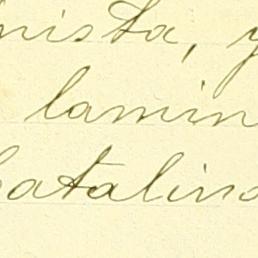 nista, y
lamin
catalina